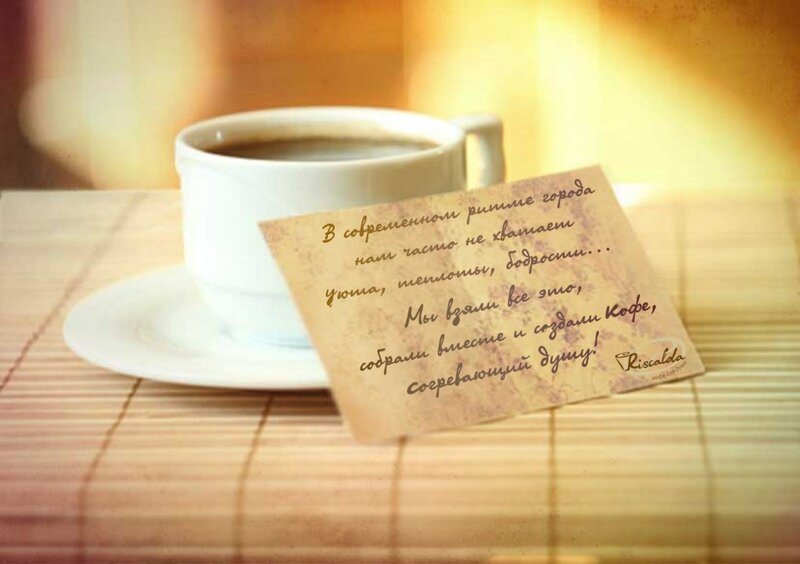 В современном ритме города
нам часто не хватает
уюта, теплоты, бодрости...
Мы взяли все это,
собрали вместе и создали кофе,
согревающий душу!
Riscalda